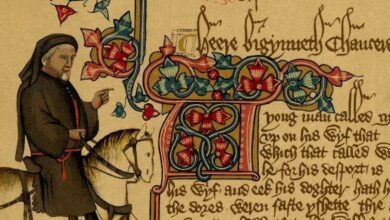 Heere bigynneth Chaucer
A yong man called
up on his wyf that
which that called
he for his desport is
his wyf and eek his doghter hath
the dores weren faste yshette thre